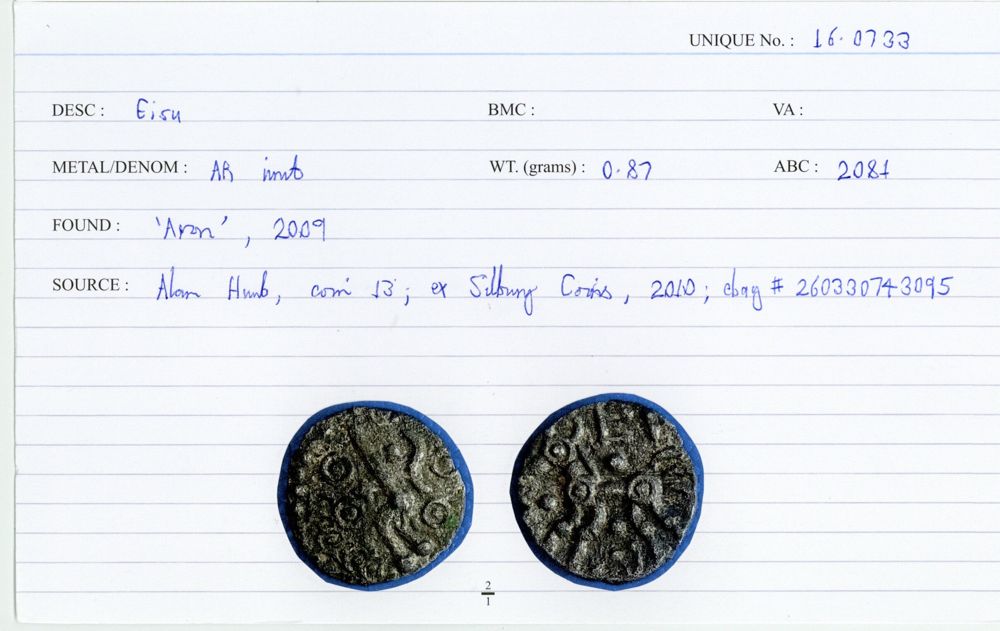 UNIQUE No. : 16.0733
DESC : Eisu BMC : VA :
METAL/DENOM : AR unit WT. (grams) : 0.87 ABC : 2081
FOUND : 'Avon', 2009
SOURCE : Alan Hunt, coin 13; ex Silbury Coins, 2010; ebay # 260330743095
2
1